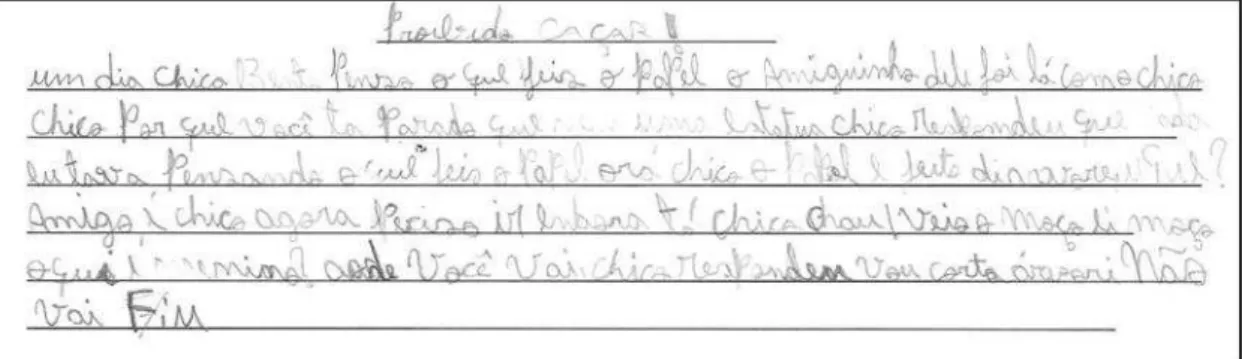 Proibido Caçar!
um dia chico Bento Penso o que feis o Papel o Amiguinho dele foi lá como chico
Chico Por que você ta Parado que uma Estatua chico Respondeu que
eu tava Penzando o que feis o Papel ora chico o Papel e feito diarvare Que?
Amigo i chico agora Perciso ir enbora tá chico chau! Veis o moço li moço
o que i menino? aode Você Vai chico respondeu vou corta árvori NãO
Vai FiM